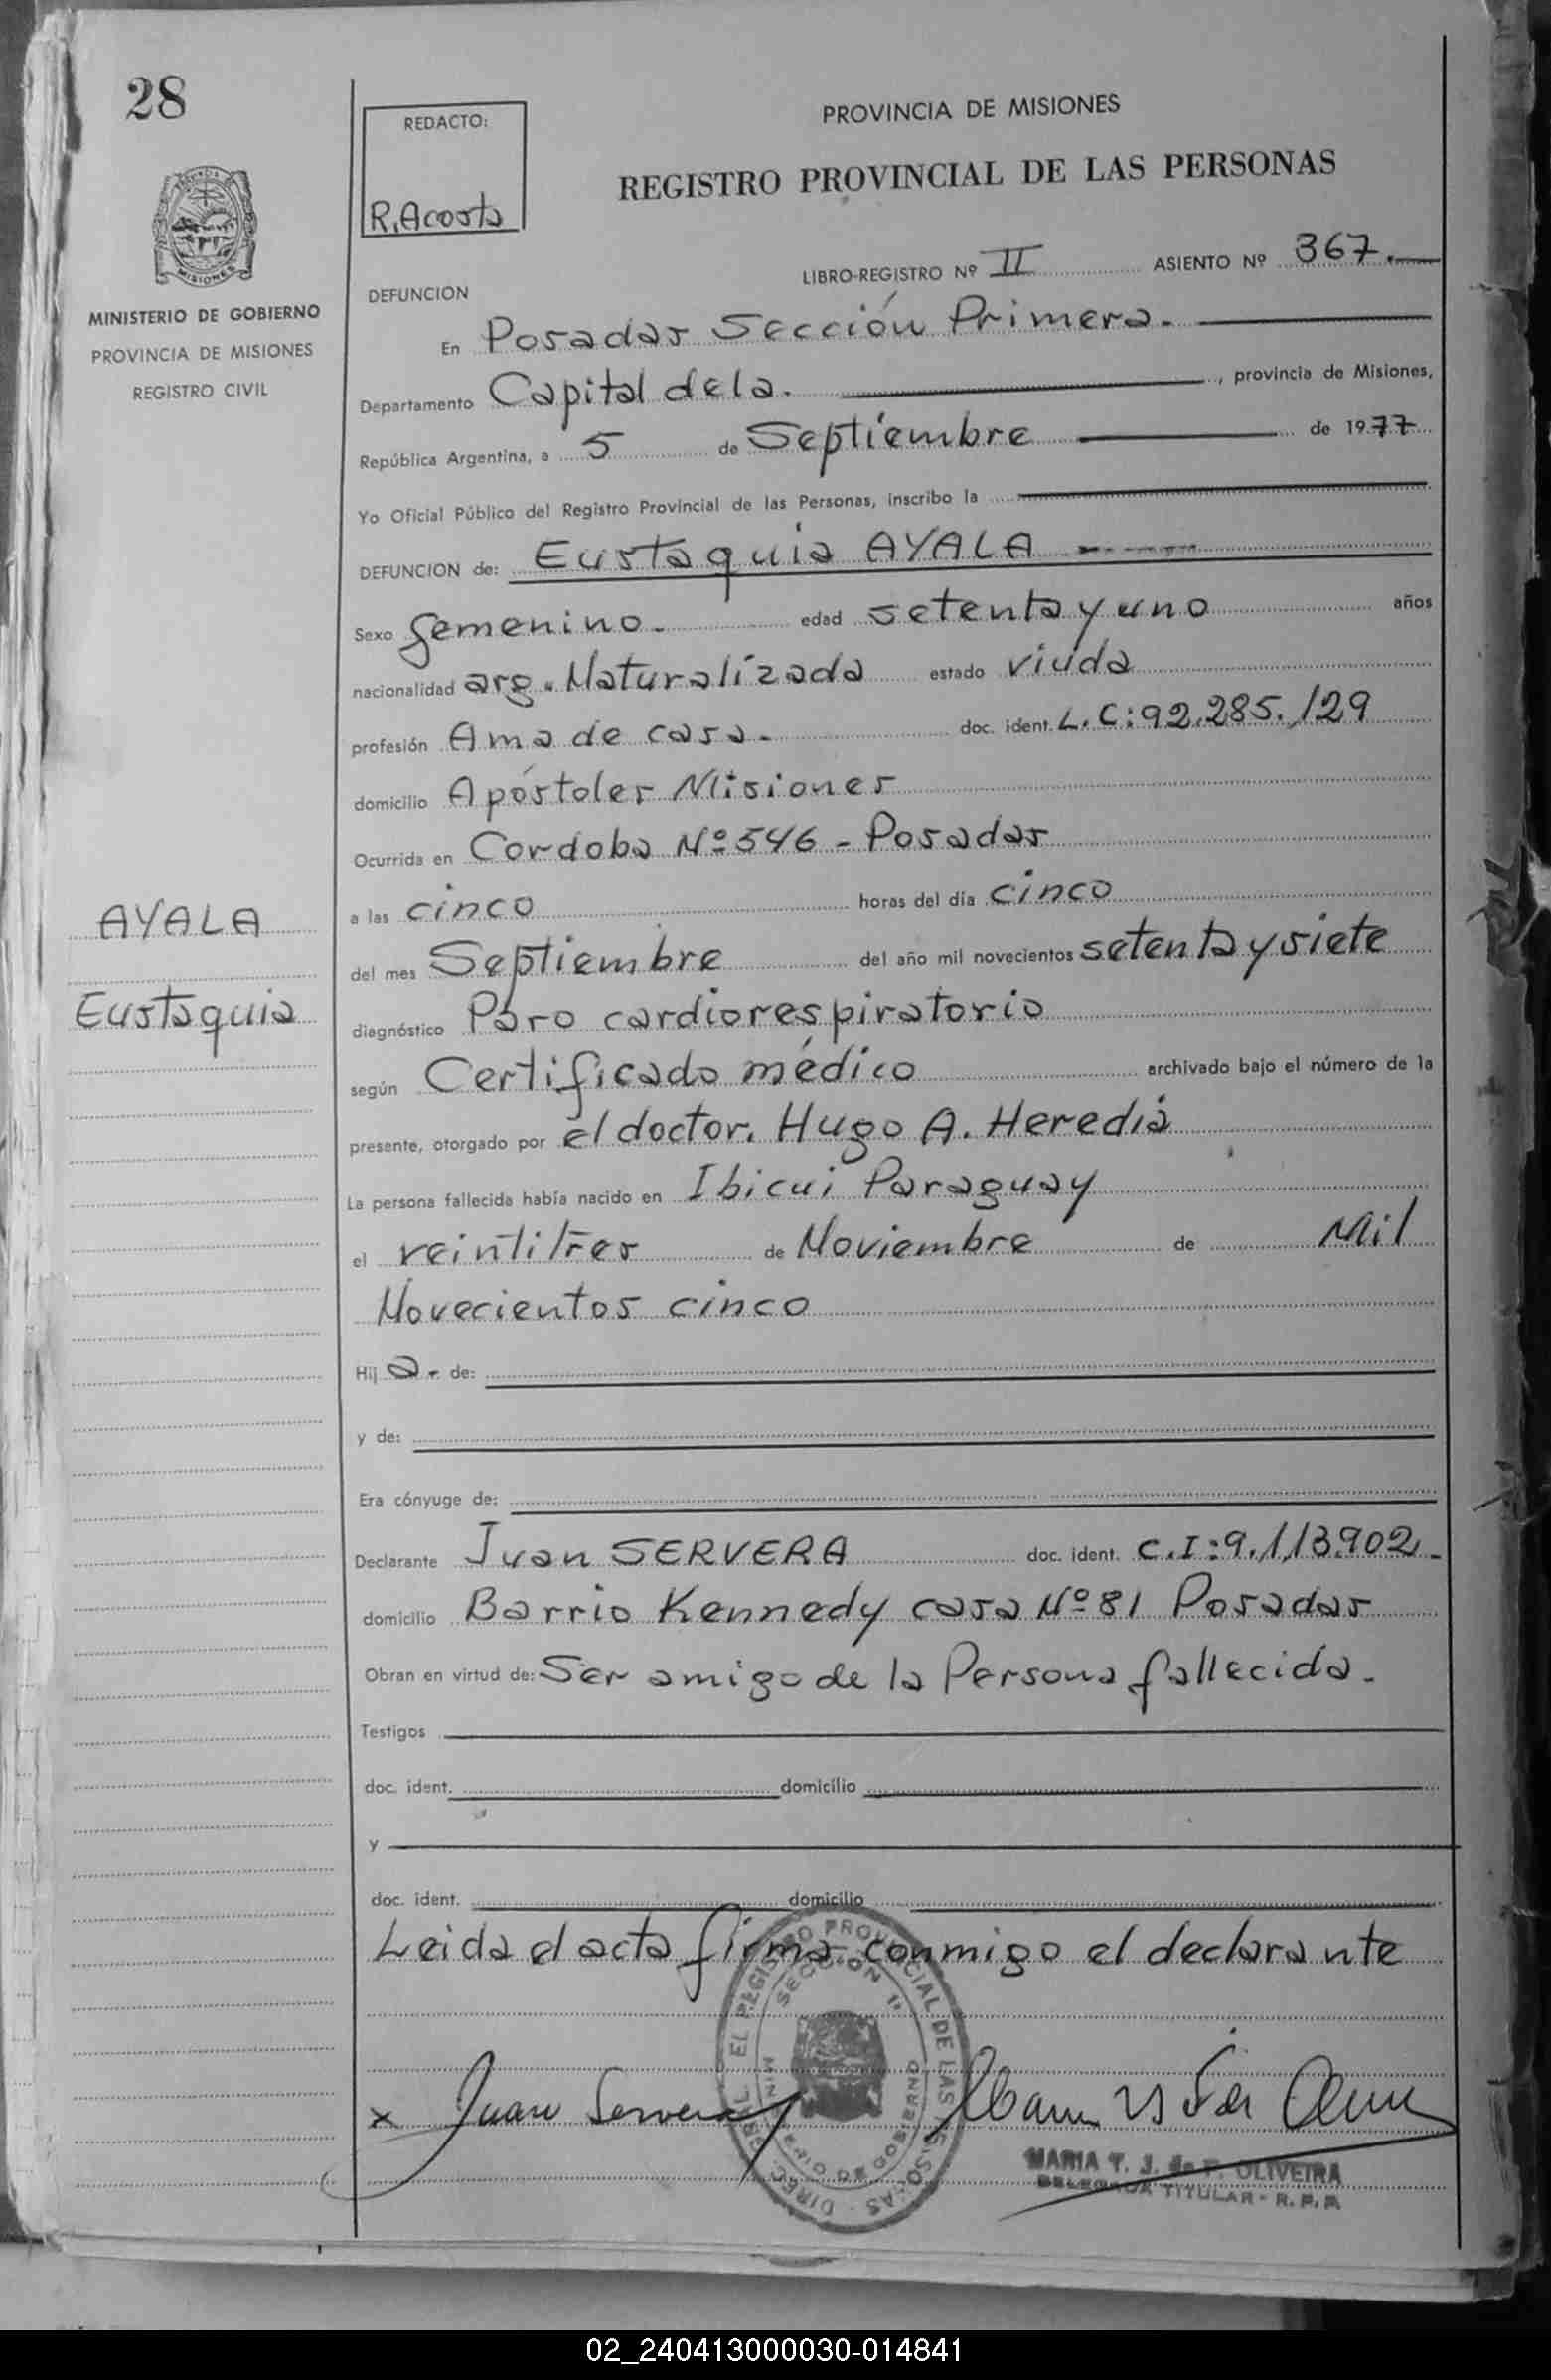 28
REDACTO:
R. Acosta
PROVINCIA DE MISIONES
REGISTRO PROVINCIAL DE LAS PERSONAS
MISIONES
MINISTERIO DE GOBIERNO
PROVINCIA DE MISIONES
REGISTRO CIVIL
LIBRO-REGISTRO Nº II ASIENTO Nº 367.
DEFUNCION
En Posadas Sección Primera.
Departamento Capital dela. , provincia de Misiones,
República Argentina, a 5 de Septiembre de 1977
Yo Oficial Público del Registro Provincial de las Personas, inscribo la
DEFUNCION de: Eustaquia AYALA
Sexo femenino. edad setenta y uno años
nacionalidad arg. Naturalizada estado viuda
profesión Ama de casa. doc. ident. L.C:92.285.129
domicilio Apóstoles Misiones
Ocurrida en Cordoba Nº 546 - Posadas
a las cinco horas del día cinco
AYALA
del mes Septiembre del año mil novecientos setenta y siete
Eustaquia
diagnóstico Paro cardiorespiratorio
según Certificado médico archivado bajo el número de la
presente, otorgado por el doctor. Hugo A. Heredia
La persona fallecida había nacido en Ibicui Paraguay
el veintitres de Noviembre de Mil
Novecientos cinco
Hij a. de:
y de:
Era cónyuge de:
Declarante Juan SERVERA doc. ident. C.I:9.113.902.
domicilio Barrio Kennedy casa Nº 81 Posadas
Obran en virtud de: Ser amigo de la Persona fallecida.
Testigos
doc. ident. domicilio
y
doc. ident. domicilio
Leida el acta firma conmigo el declarante
x Juan Servera
MARIA T. J. de F. OLIVEIRA
DELEGADA TITULAR - R. P. P.
02_240413000030-014841